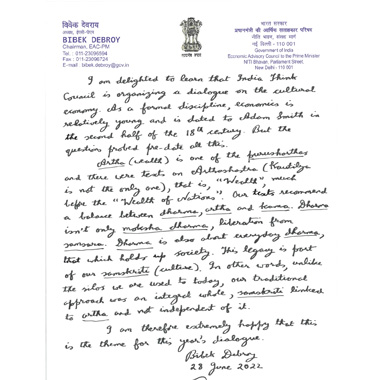 विवेक देवराय
अध्यक्ष, ईएसी-पीएम
BIBEK DEBROY
Chairman, EAC-PM
Tel : 011-23096564
Fax : 011-23096724
E-mail bibek.debroy@gov.in
भारत सरकार
प्रधानमंत्री की आर्थिक सलाहकार परिषद
नीति भवन, संसद मार्ग
नई दिल्ली - 110 001
Government of India
Economic Advisory Council to the Prime Minister
NITI Bhavan, Parliament Street,
New Delhi - 110 001
I am delighted to learn that India Think
Council is organizing a dialogue on the cultural
economy. As a formal discipline, economics is
relatively young and is dated to Adam Smith in
the second half of the 18th century. But the
questions probed pre-date all this.
Artha (wealth) is one of the purusharthas
and there were texts on Arthashastra (Kautilya
is not the only one), that is, "Wealth", much
before the "Wealth of Nations". Our texts recommend
a balance between dharma, artha and kama. Dharma
isn't only moksha dharma, liberation from
samsara. Dharma is also about everyday dharma,
that which holds up society. This legacy is part
of our samskriti (culture). In other words, unlike
the silos we are used to today, our traditional
approach was an integral whole, samskriti linked
to artha and not independent of it.
I am therefore extremely happy that this
is the theme for this year's dialogue.
Bibek Debroy
28 June 2022